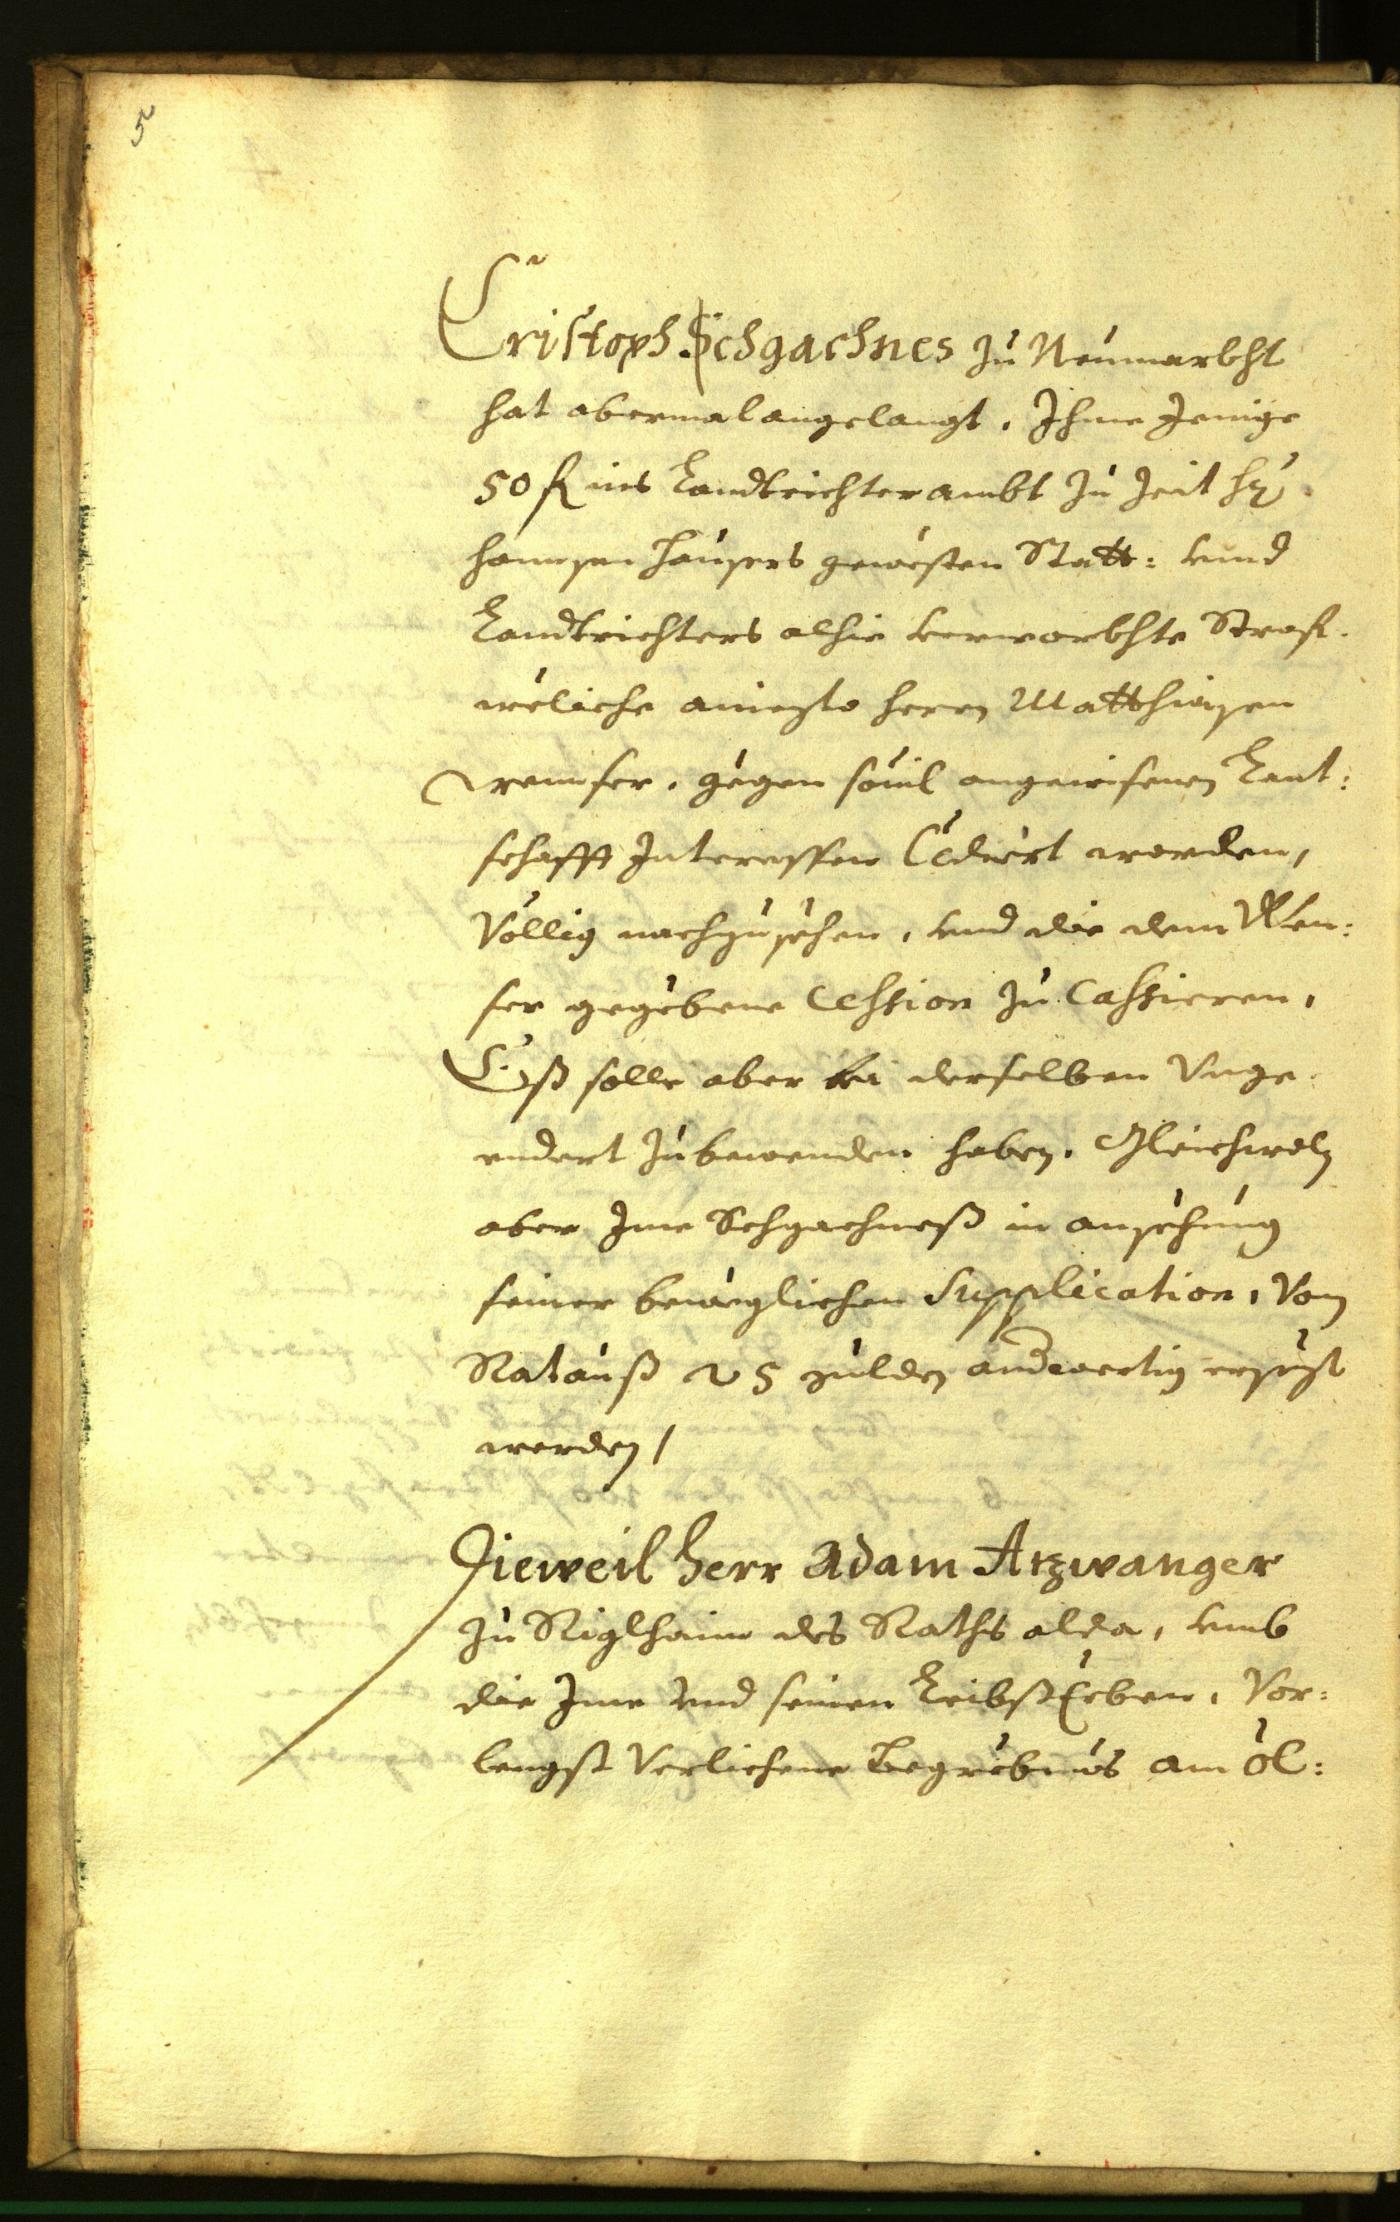 5
Cristoph Schgachnes zu Neumarkht
hat abermal angelangt, Ihme Jenige
50 fl ins Landtrichterambt zu Zeit Hℓ
hannsen Hausers gewesten Statt: vnnd
Landtrichters alhie verworkhte Straff.
weliche aniezto herrn Matthiasen
gegen souil angewisenen Lant:
schafft Interessen Cediert worden,
Völlig nachzusehen, vnd die dem
ser gegebene Cession zu Cassieren,
Eß solle aber bei derselben Vnge:
endert zubewenden haben. Gleichwoln
aber Ime Schgachneß in ansehung
seiner beweglichen Supplication, Vom
Rathauß 25 gulden anderwertig ersezt
werden /
Dieweil Herr Adam Atzwanger
zu Siglhaim des Raths alda, vmb
die Ime Vnd seinen LeibßErben, Vor:
lengst Verlichene Begrebnus am Öl: